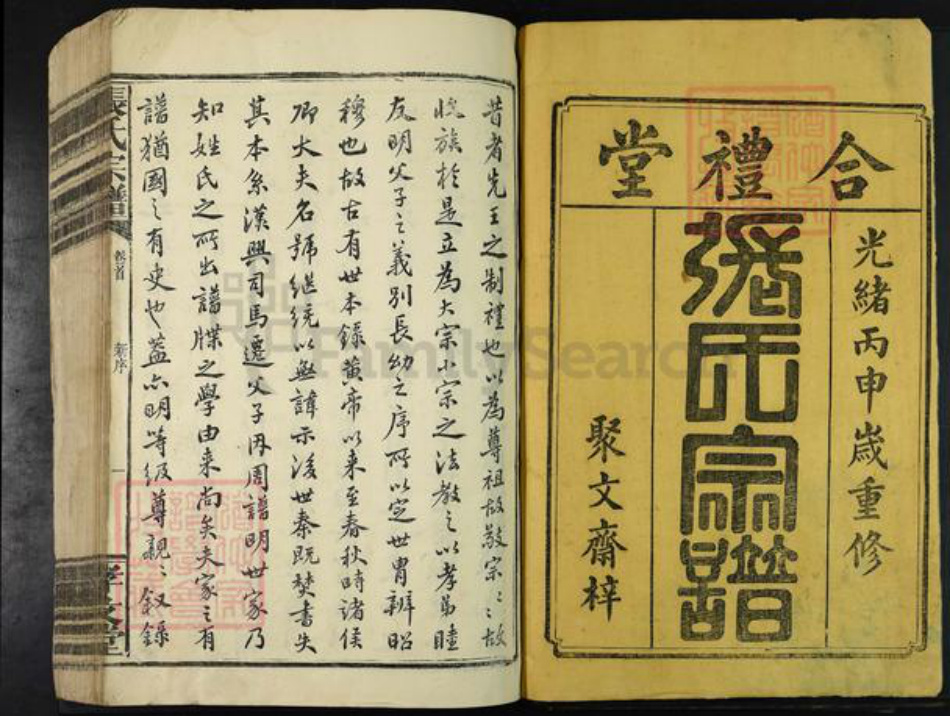 合禮堂
光緒丙申歲重修
張氏宗譜
聚文齋梓
昔者先王之制禮也以為尊祖故敬宗〻〻故
收族於是立為大宗小宗之法教之以孝弟睦
友明父子之義別長幼之序所以定世胄辨昭
穆也故古有世本錄黃帝以来至春秋時諸侯
卿大夫名號继统以無諱示後世秦既焚書失
其本系漢興司馬遷父子因周譜明世家乃
知姓氏之所出譜牒之學由来尚矣夫家之有
譜猶國之有史也蓋以明等级尊親〻叙錄
張氏宗譜
卷首
新序
一
FamilySearch